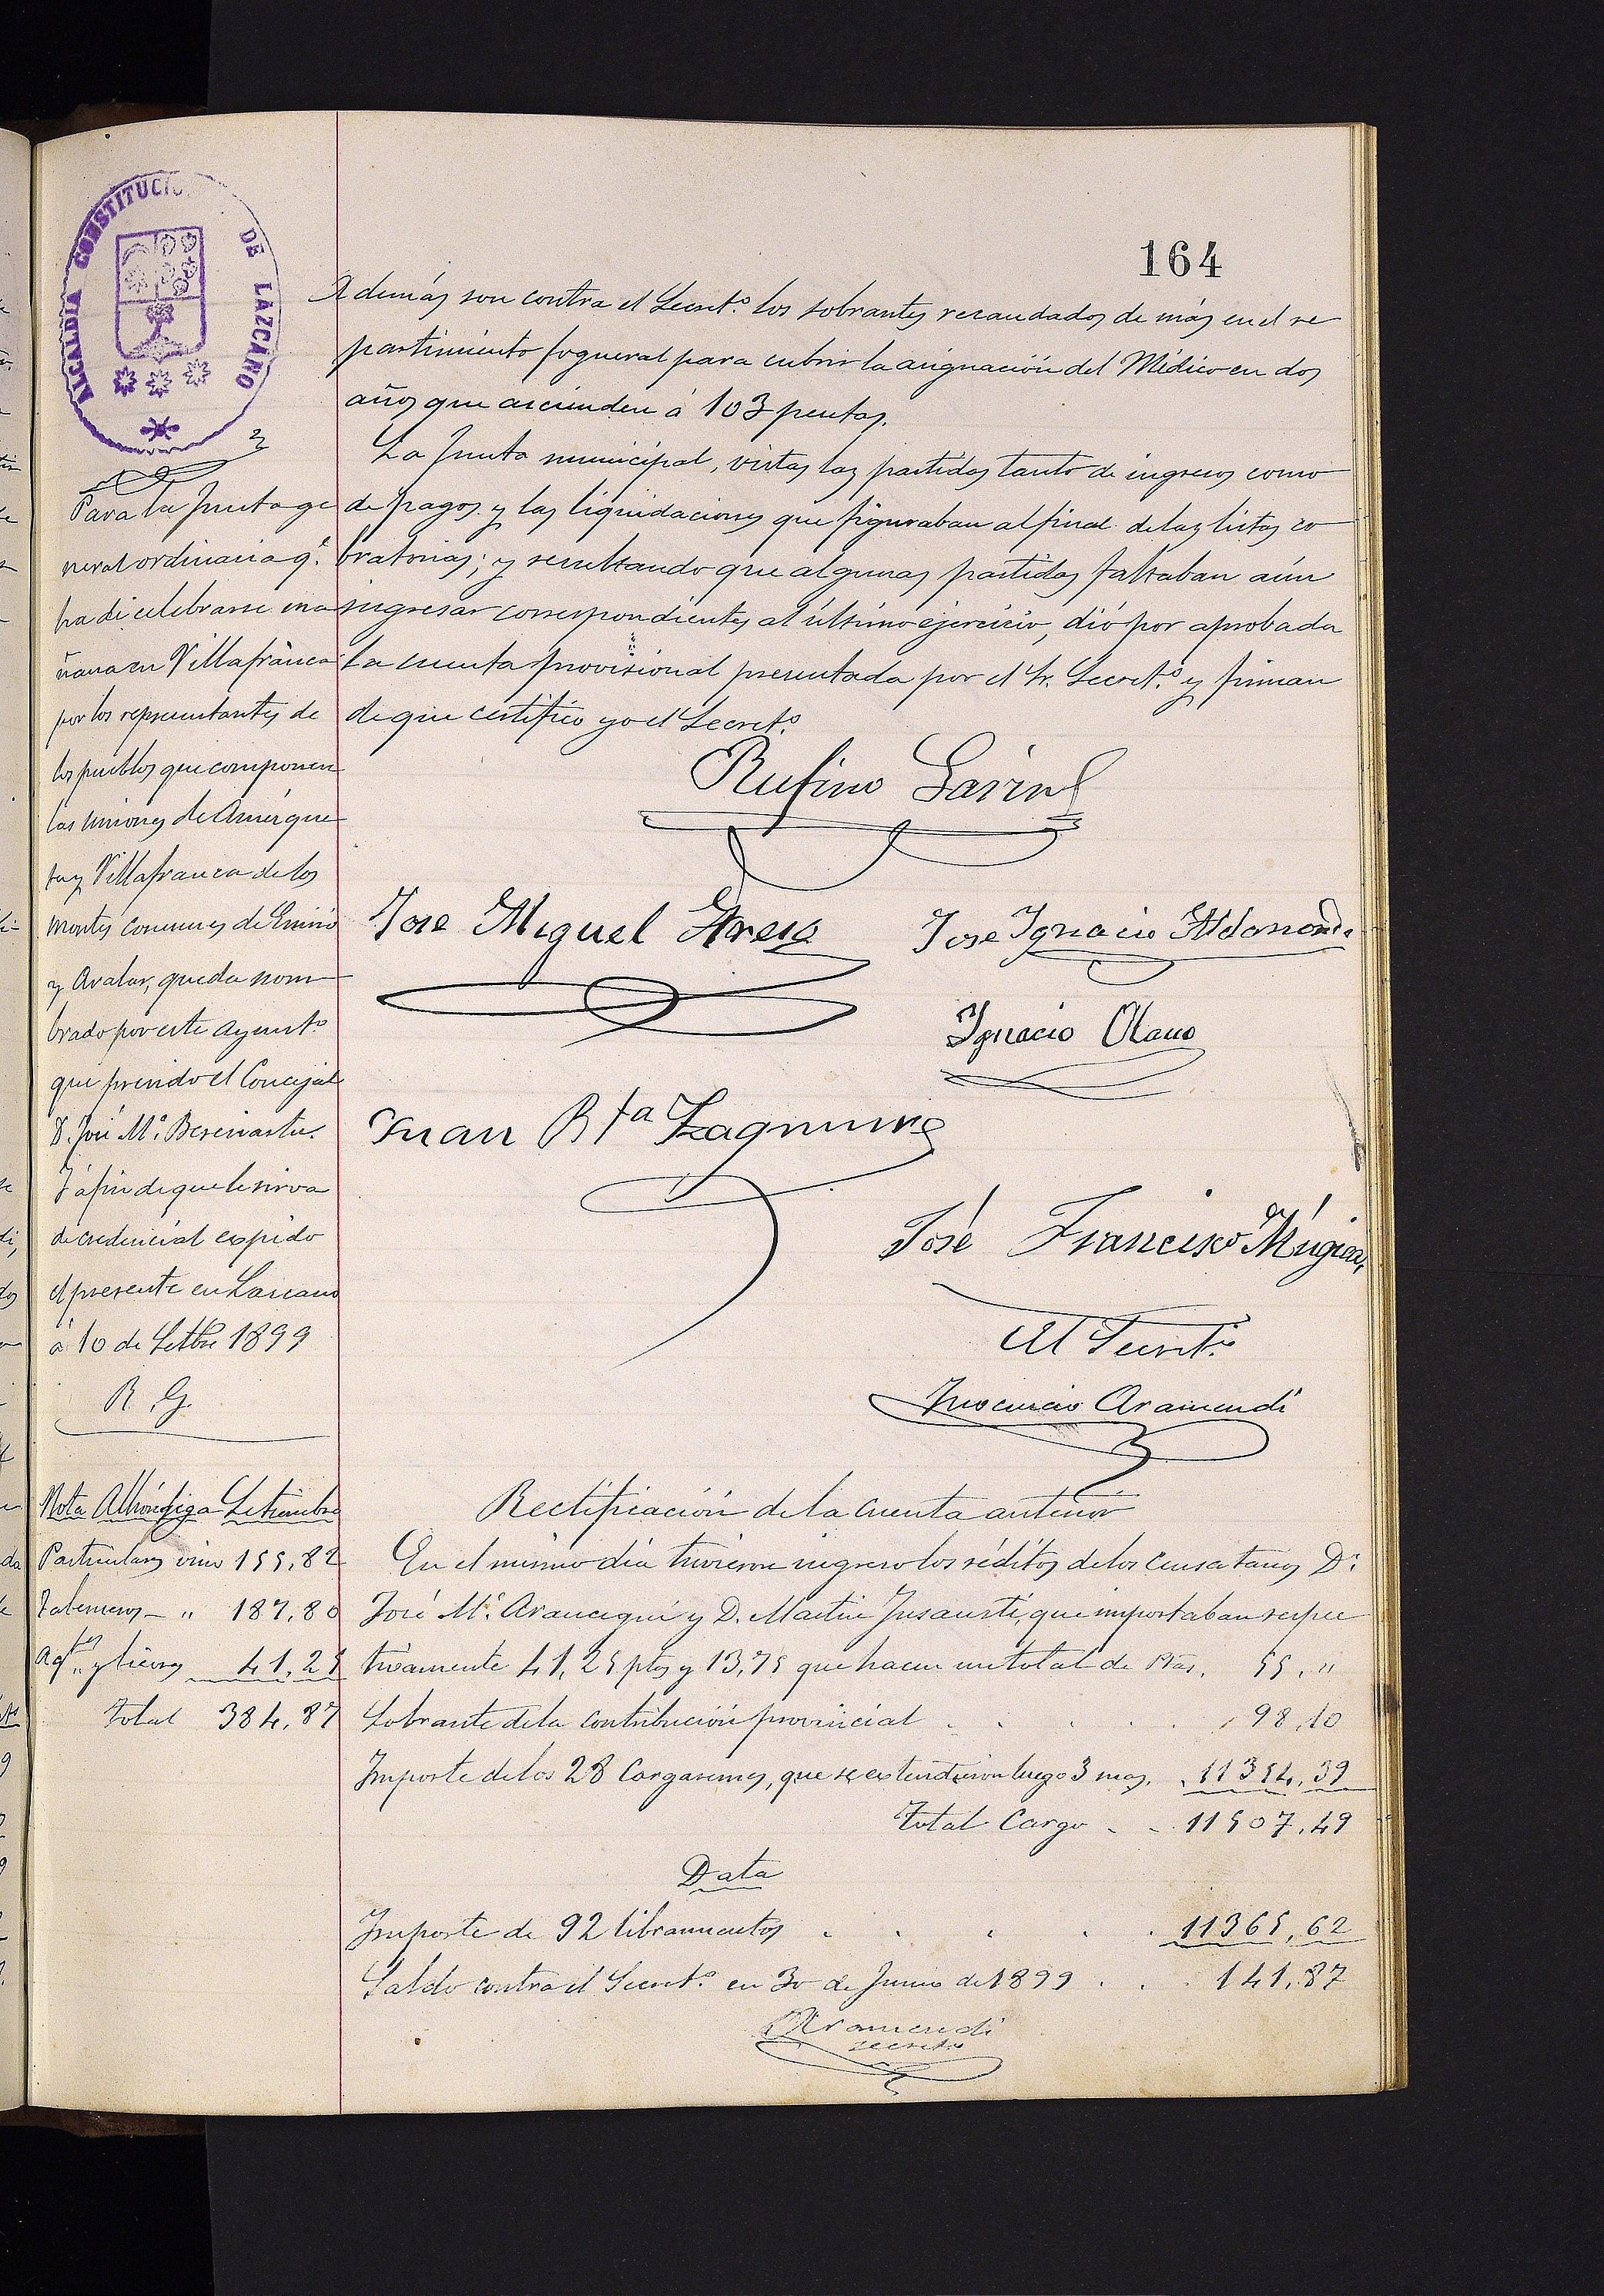 164
ALCALDIA CONSTITUCIO DE LAZCANO
Además son contra el Secret.º los sobrantes recaudados de más en el re
partimiento fogueral para cubrir la asignación del Médico en dos
años que ascienden á 103 pesetas.
La Junta municipal, vistas las partidas tanto de ingresos como
de pagos y las liquidaciones que figuraban al final de las listas co
bratorias; y resultando que algunas partidas faltaban aún
ingresar correspondientes al último ejercicio, dió por aprobada
la cuenta provisional presentada por el Sr. Secret.º y firman
de que certifico yo el Secret.º
Rufino
Jose Miguel
Jose Ignacio Aldasoro
Ignacio Olano
Juan Bta
José Francisco Múgica
El Secret.º
Inocencio Aramendi
Para la Junta ge
neral ordinaria q.e
ha de celebrarse ma
ñana en Villafranca
por los representantes de
los pueblos que componen
las uniones de Amézque
ta y Villafranca de los
montes comunes de Enirio
y Aralar, queda nom
brado por este Ayunt.º
que presido el Concejal
D. José M.ª
Y á fin de que le sirva
de credencial expido
el presente en Lazcano
á 10 de Setbre 1899
R. G.
Nota Alhóndiga Setiembre
Particulares vino 155,82
Taberneros - " 187,80
Ag.tes y licores 41,25
Total 384,87
Rectificación de la cuenta anterior
En el mismo día tuvieron ingreso los réditos de los censatarios D.n
José M.ª Arancegui y D. Martin Insausti, que importaban respec
tivamente 41,25 pts y 13,75 que hacen un total de Ptas. 55,"
Sobrante de la contribución provincial . . . . 98,10
Importe de los 28 Cargaremes, que se extendieron luego 3 mas. 11354,39
Total Cargo . . 11507,49
Data
Importe de 92 libramientos . . . . . 11365,62
Saldo contra el Secret.º en 30 de Junio de 1899 . . . 141,87
Aramendi
secret.º